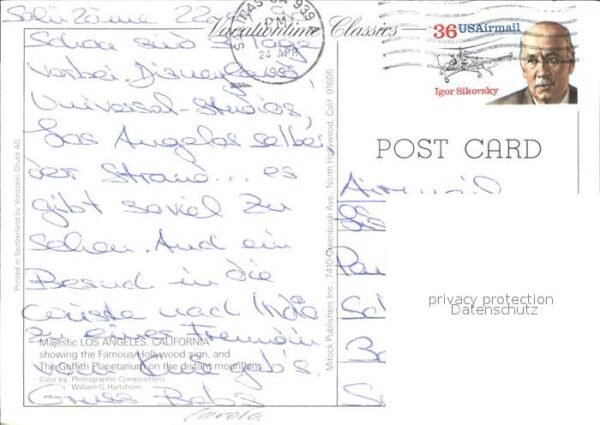 Vacationtime Classics
SALINAS CA 939
PM
24 APR
36 USAirmail
Igor Sikorsky
POST CARD
Schon sind 3 Tage
vorbei. Disneyland,
Universal-Studios,
Los Angeles selber,
der Strand... es
gibt soviel zu
sehen. Und ein
Besuch in die
Wüste nach Indio
zu einer Freundin
vom gab's.
Gruss Bab's
Carola
Majestic LOS ANGELES, CALIFORNIA
showing the Famous Hollywood sign, and
The Griffith Planetarium on the distant mountains.
Color by Photographic Compositions
William G. Hartshorn
Printed in Switzerland by Vontobel-Druck AG
Mitock Publishers Inc. 7410 Greenbush Ave., North Hollywood, Calif. 91605
Airmail
privacy protection
Datenschutz